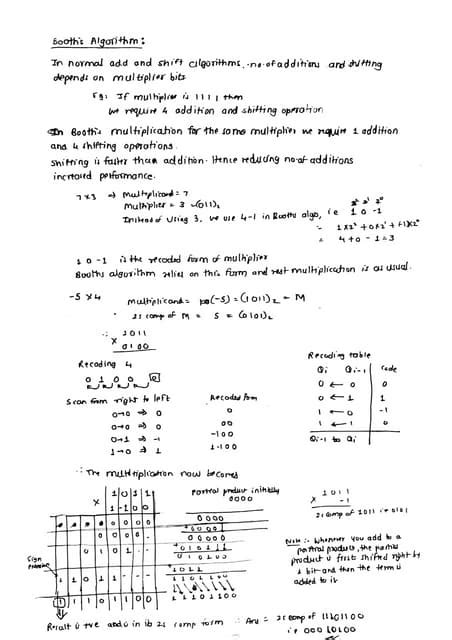 Booth's Algorithm:
In normal add and shift algorithms, no. of additions and shifting
depends on multiplier bits
Eg: If multiplier is 1111 then
we require 4 addition and shifting operation
In Booth's multiplication for the same multiplier we require 1 addition
and 4 shifting operations.
Shifting is faster than addition. Hence reducing no. of additions
increased performance.
7x3 ⇒ Multiplicand = 7
Multiplier = 3 → (011)₂
2² 2¹ 2⁰
Instead of using 3, we use 4-1 in Booths algo, i.e 1 0 -1
= 1x2² + 0x2¹ + (-1)x2⁰
= 4+0-1=3
1 0 -1 is the recoded form of multiplier
Booths algorithm relies on this form and rest multiplication is as usual.
-5 x 4 Multiplicand = (-5) = (1011)₂ → M
2s comp of M = 5 = (0101)₂
∴ 1011
x 0100
Recoding 4
0 1 0 0 0
Scan from right to left Recoded form
0→0 ⇒ 0 0
0→0 ⇒ 0 00
0→1 ⇒ -1 -100
1→0 ⇒ 1 1-100
Recoding table
Qi Qi-1 Code
0 ← 0 0
0 ← 1 1
1 ← 0 -1
1 ← 1 0
Qi-1 to Qi
∴ The multiplication now becomes
1 0 1 1
x 1 -1 0 0
0 0 0 0
0 0 0 0 -
0 1 0 1 - -
1 1 0 1 1 - - -
1 1 1 0 1 1 0 0
Sign
Partial product initially
0000
0000
+0000
00000
+0101
+1011
11101100
1011
x -1
2s comp of 1011 i.e 0101
Note :- Whenever you add to a
partial products, the partial
product is first shifted right by
1 bit and then the term is
added to it
Result is -ve and is in its 2s comp form ∴ Ans = 2s comp of 11101100
i.e 00010100